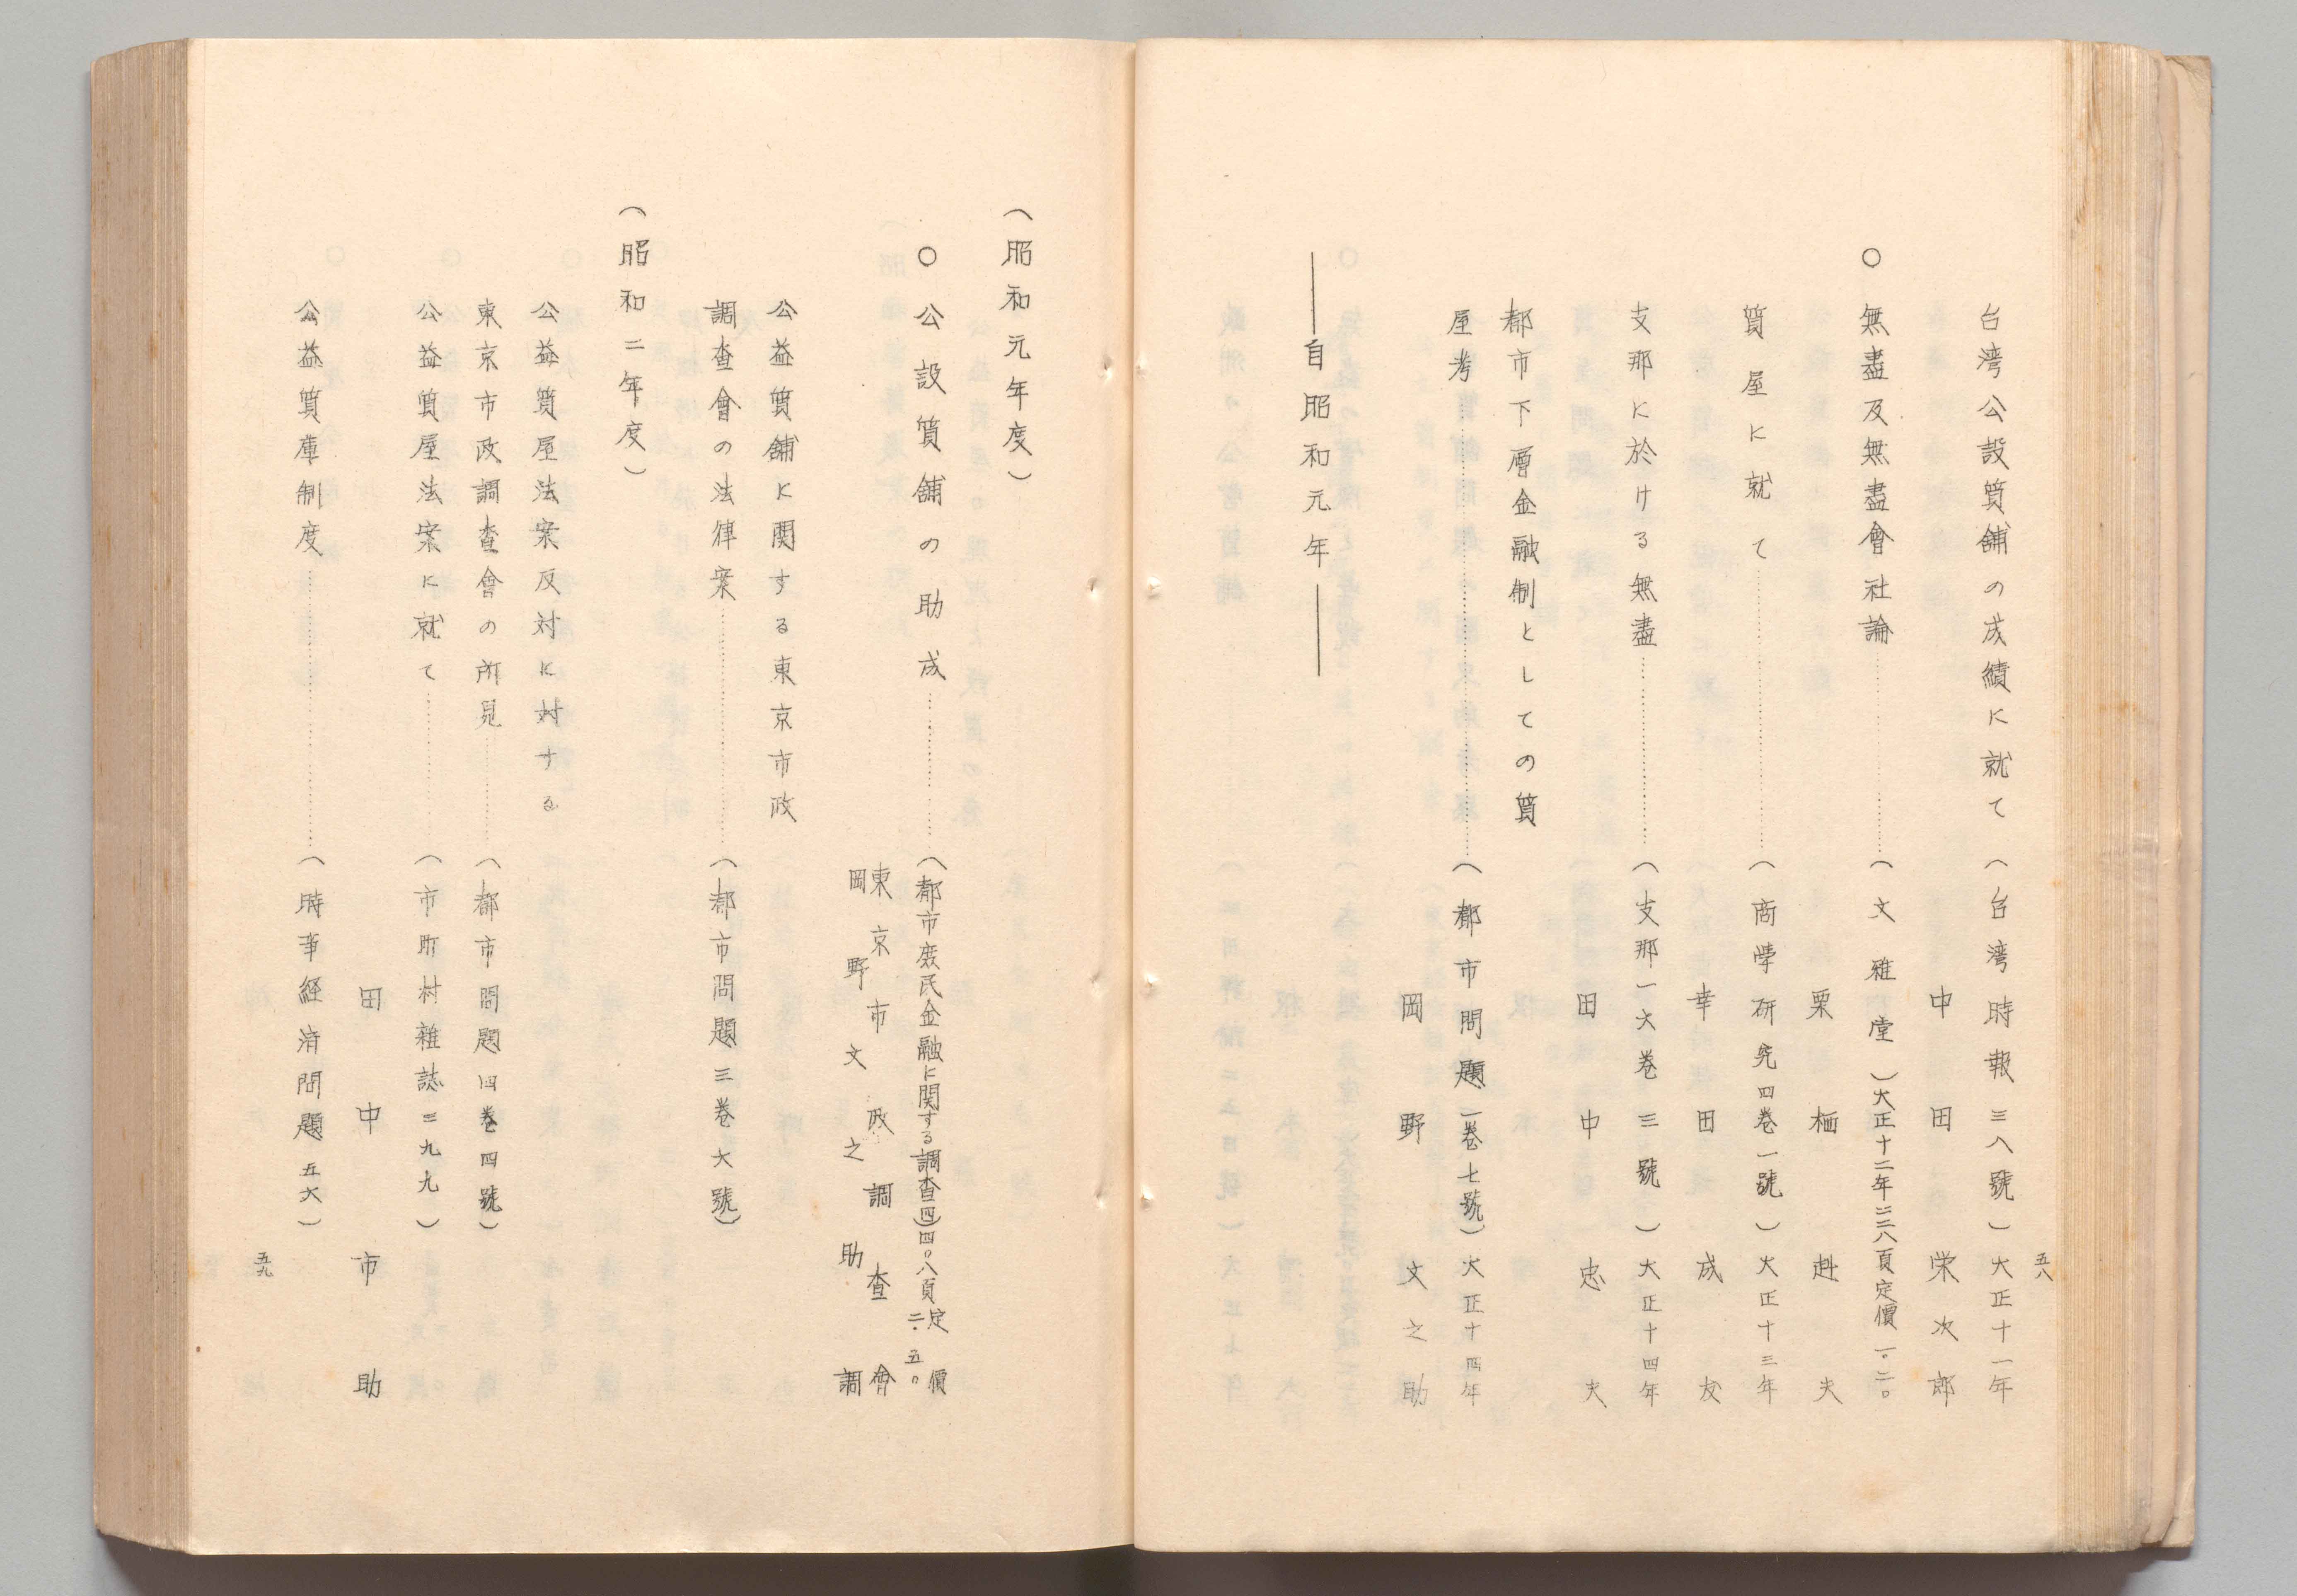 五八
台湾公設質舗の成績に就て（台湾時報三八號）大正十一年
中田栄次郎
○無盡及無盡會社論…………（文雅堂）大正十二年二二八頁定價一・二〇
栗栖赳夫
質屋に就て…………（商學研究四巻一號）大正十三年
幸田成友
支那に於ける無盡…………（支那一六巻三號）大正十四年
田中忠夫
都市下層金融制としての質
屋考…………（都市問題一巻七號）大正十四年
岡野文之助
――自昭和元年――
（昭和元年度）
○公設質舗の助成…………（都市庶民金融に関する調査（四）四〇八頁定價二・五〇
東京市政調査會
岡野文之助調
公益質舗に関する東京市政
調査會の法律案…………（都市問題三巻六號）
（昭和二年度）
公益質屋法案反対に対する
東京市政調査會の所見…………（都市問題四巻四號）
公益質屋法案に就て…………（市町村雑誌三九九）
田中市助
公益質庫制度…………（時事経済問題五六）
五九